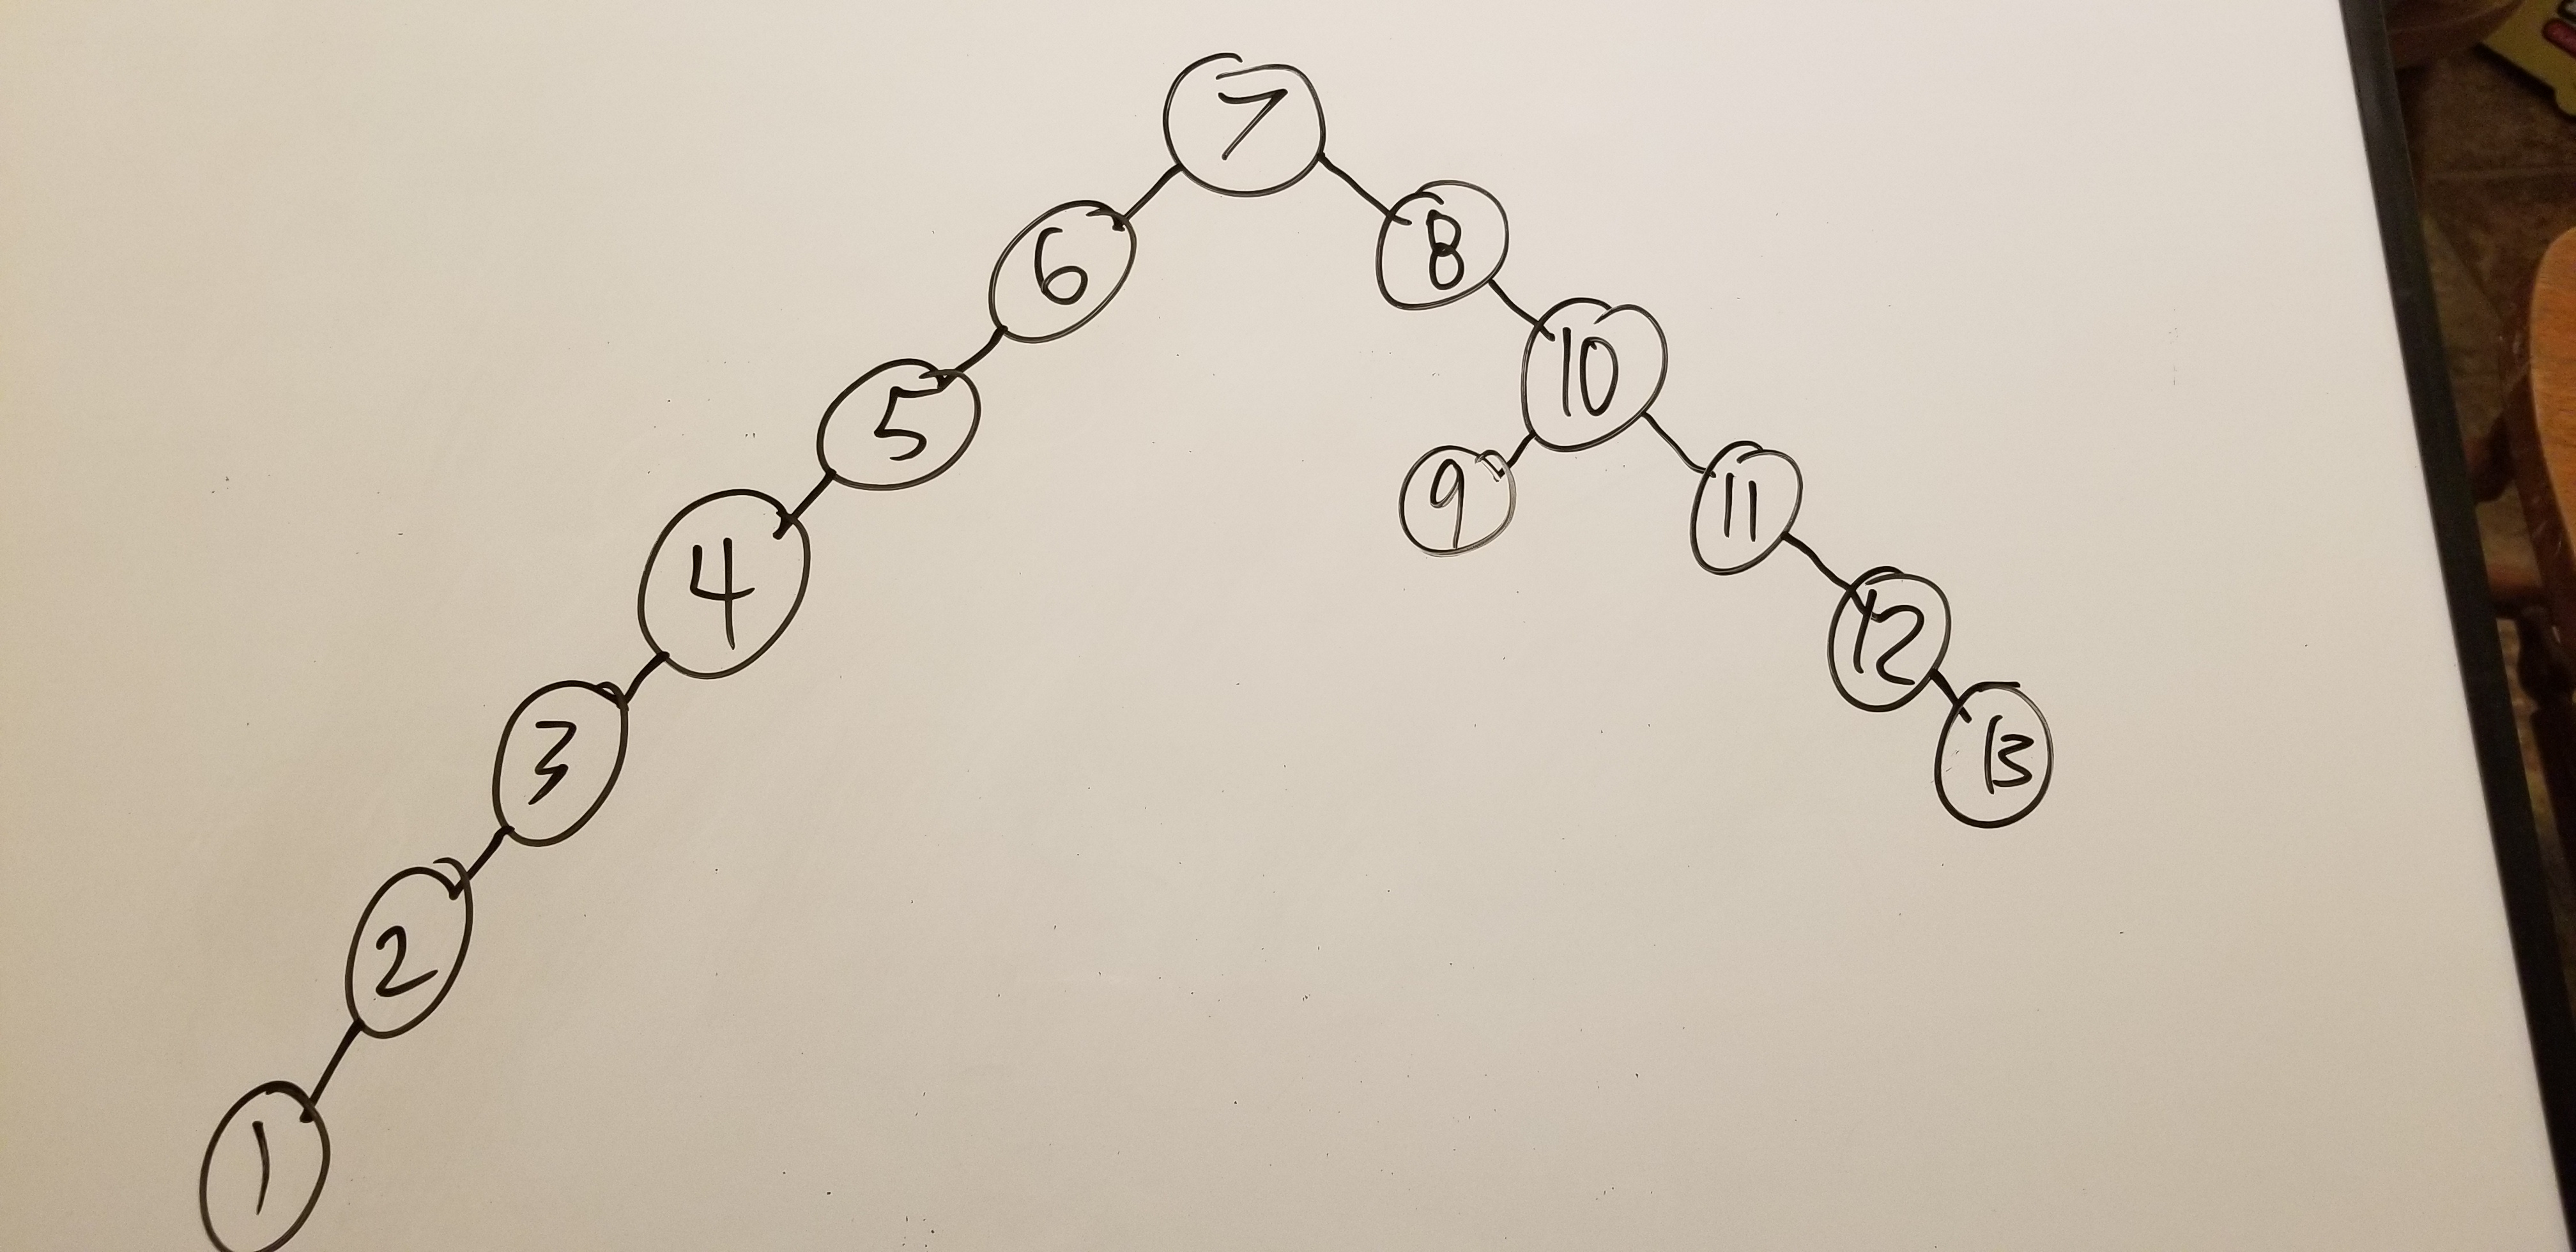 7
6
8
5
10
4
9
11
3
12
2
13
1